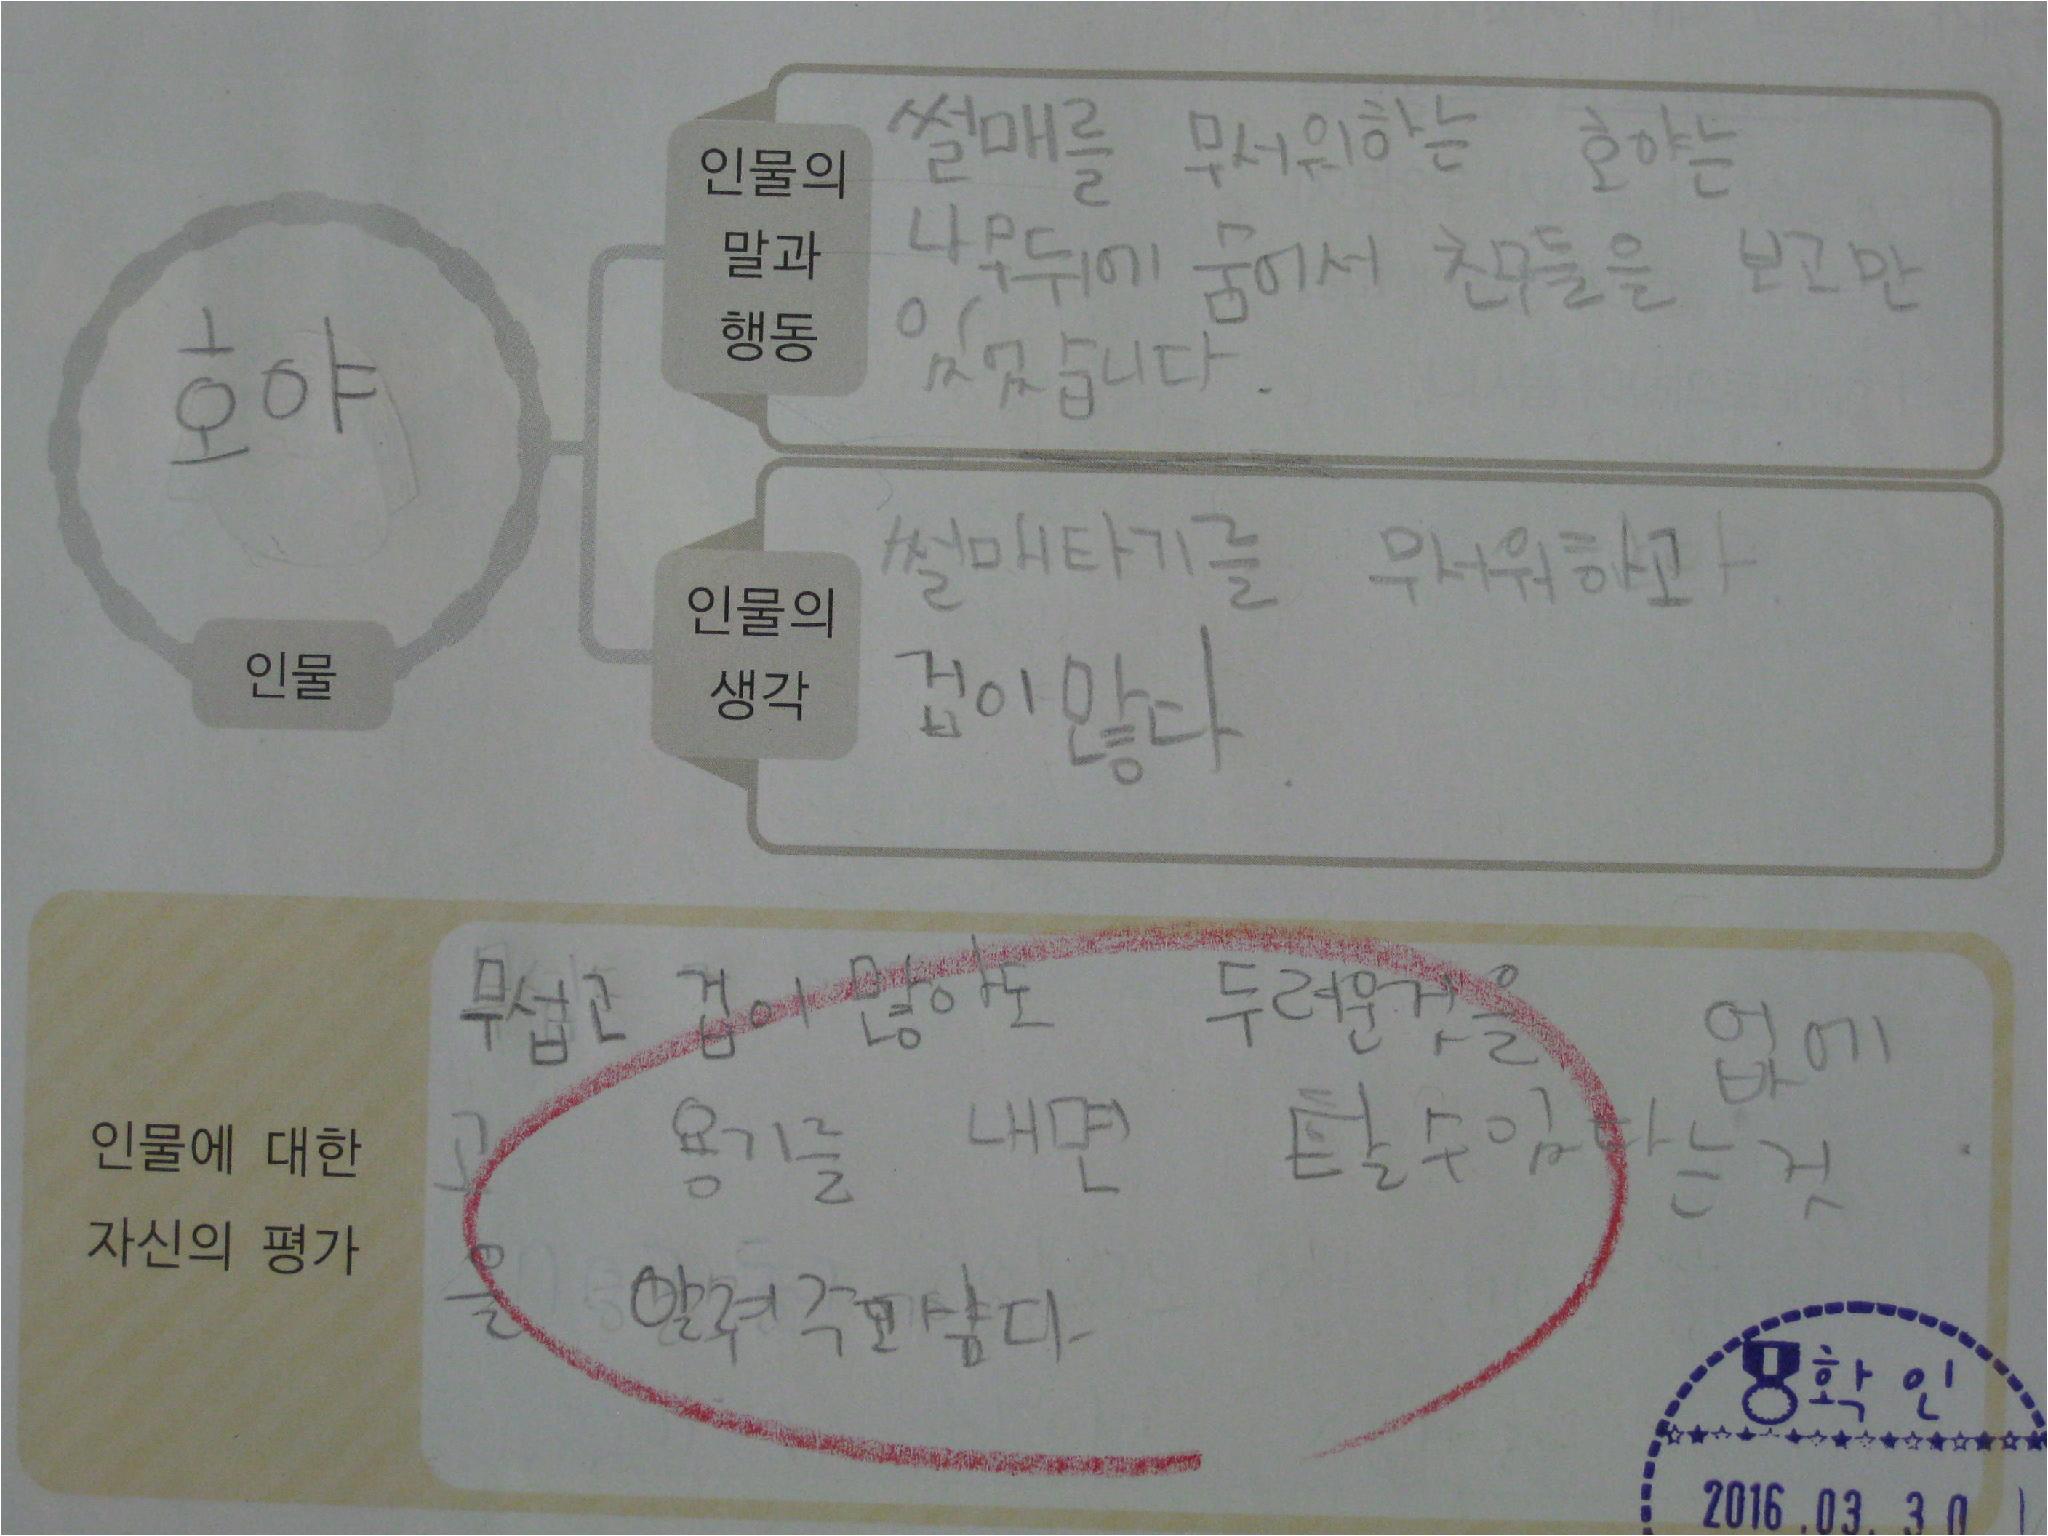 호야
인물
인물의
말과
행동
썰매를 무서워하는 호야는
나무뒤에 숨어서 친구들을 보고만
있었습니다.
인물의
생각
썰매타기를 무서워하고
겁이많다.
인물에 대한
자신의 평가
무섭고 겁이 많아도 두려운것을 없에
고 용기를 내면 탈수있다는 것
을
확인
2016.03.30